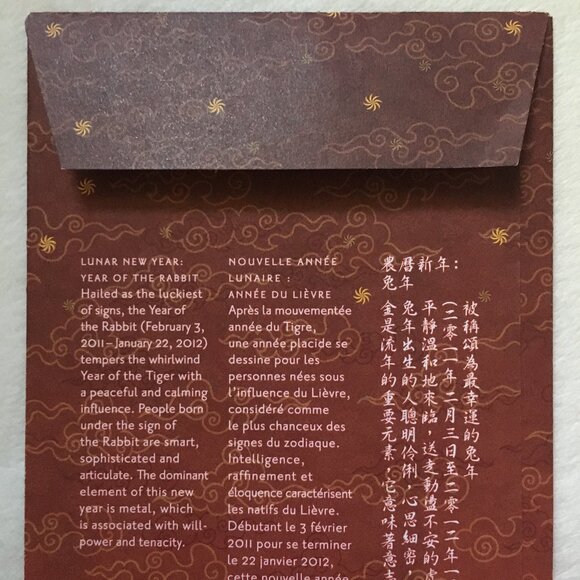 LUNAR NEW YEAR:
YEAR OF THE RABBIT
Hailed as the luckiest
of signs, the Year of
the Rabbit (February 3,
2011 – January 22, 2012)
tempers the whirlwind
Year of the Tiger with
a peaceful and calming
influence. People born
under the sign of
the Rabbit are smart,
sophisticated and
articulate. The dominant
element of this new
year is metal, which
is associated with will-
power and tenacity.
NOUVELLE ANNÉE
LUNAIRE :
ANNÉE DU LIÈVRE
Après la mouvementée
année du Tigre,
une année placide se
dessine pour les
personnes nées sous
l'influence du Lièvre,
considéré comme
le plus chanceux des
signes du zodiaque.
Intelligence,
raffinement et
éloquence caractérisent
les natifs du Lièvre.
Débutant le 3 février
2011 pour se terminer
le 22 janvier 2012,
cette nouvelle année
農曆新年:
兔年
被稱頌為最幸運的兔年
(二零一一年二月三日至二零一二年一
平靜溫和地來臨,送走動盪不安的
兔年出生的人聰明伶俐,心思細密,
金是流年的重要元素,它意味著意